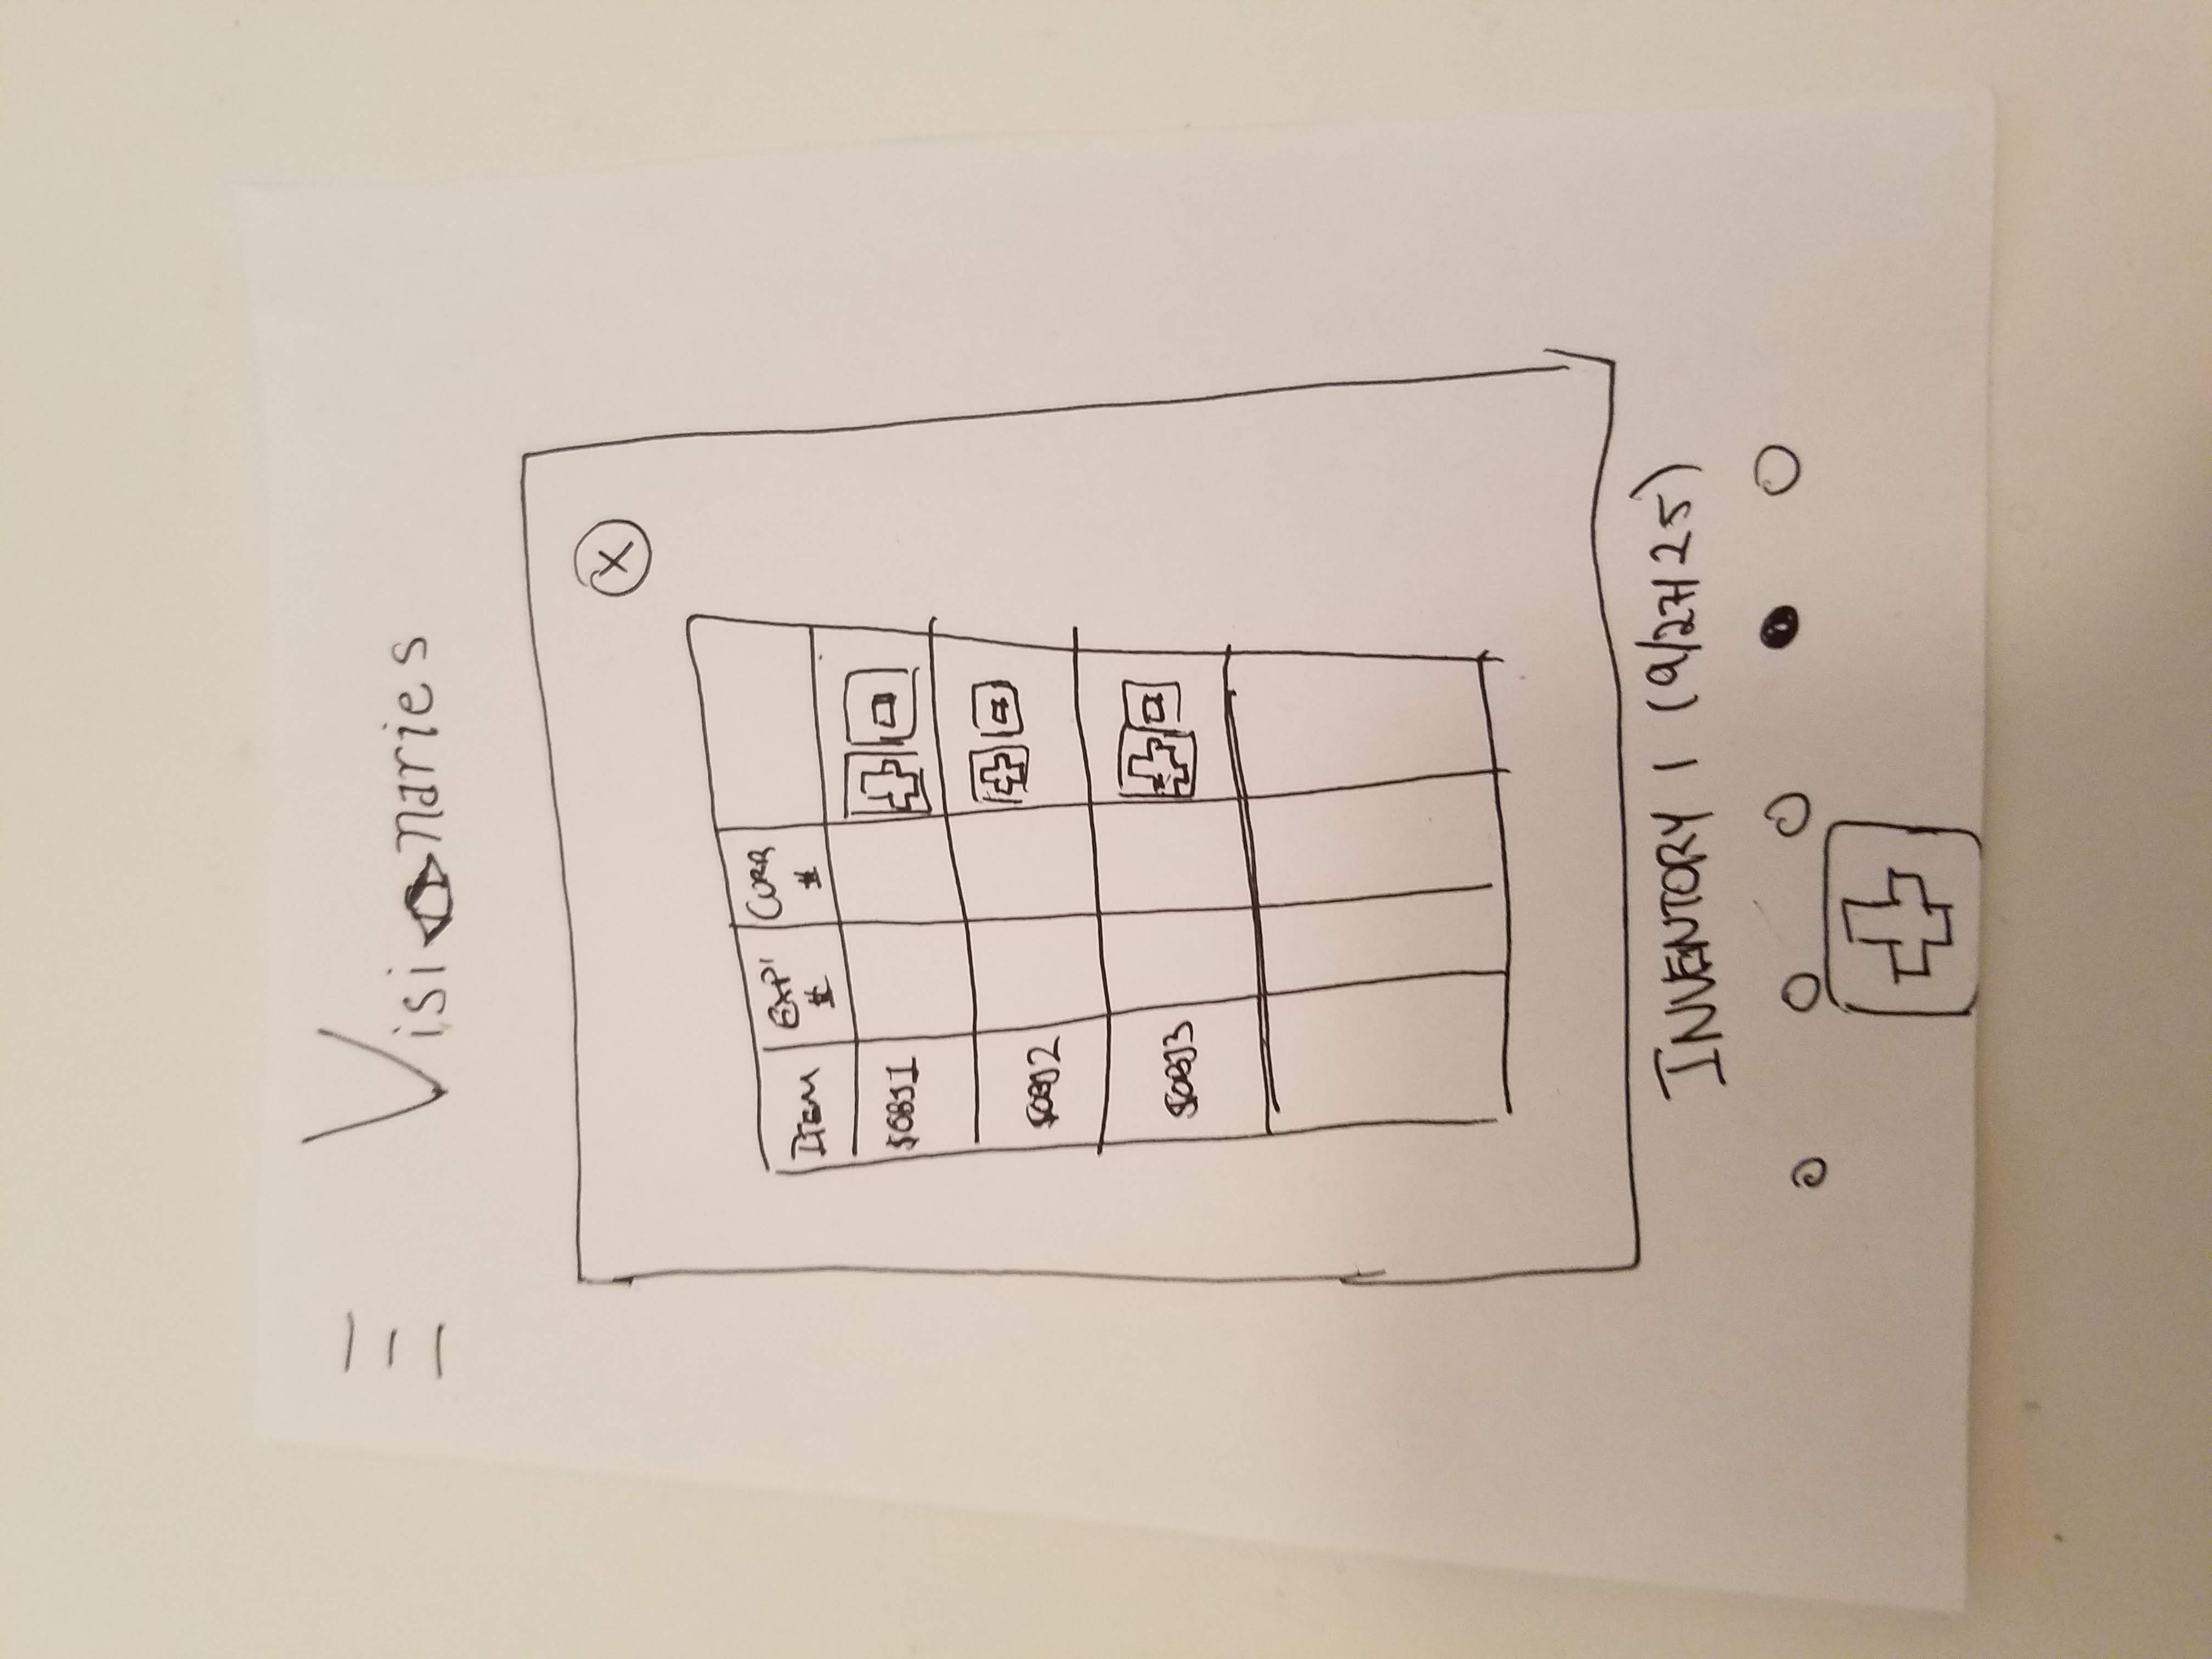 Visionaries
X
ITEM EXP' # CURR #
$OBJ1
$OBJ2
$OBJ3
INVENTORY 1 (9/27/25)